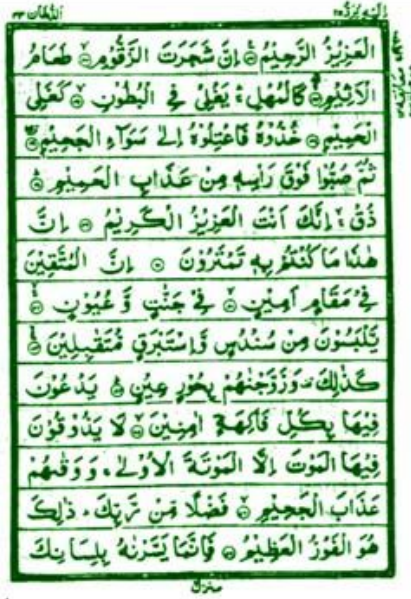 اليه يرد ٢٥
الدخان ٤٤
الْعَزِيْزُ الرَّحِيْمُ ۝ اِنَّ شَجَرَتَ الزَّقُّوْمِ ۝ طَعَامُ
الْاَثِيْمِ ۝ كَالْمُهْلِ ۛ يَغْلِيْ فِي الْبُطُوْنِ ۝ كَغَلْيِ
الْحَمِيْمِ ۝ خُذُوْهُ فَاعْتِلُوْهُ اِلٰى سَوَآءِ الْجَحِيْمِ ۝
ثُمَّ صُبُّوْا فَوْقَ رَاْسِهٖ مِنْ عَذَابِ الْحَمِيْمِ ۝
ذُقْ ۙ اِنَّكَ اَنْتَ الْعَزِيْزُ الْكَرِيْمُ ۝ اِنَّ
هٰذَا مَا كُنْتُمْ بِهٖ تَمْتَرُوْنَ ۝ اِنَّ الْمُتَّقِيْنَ
فِيْ مَقَامٍ اَمِيْنٍ ۝ فِيْ جَنّٰتٍ وَّ عُيُوْنٍ ۝
يَّلْبَسُوْنَ مِنْ سُنْدُسٍ وَّاِسْتَبْرَقٍ مُّتَقٰبِلِيْنَ ۝
كَذٰلِكَ ۣ وَزَوَّجْنٰهُمْ بِحُوْرٍ عِيْنٍ ۝ يَدْعُوْنَ
فِيْهَا بِكُلِّ فَاكِهَةٍ اٰمِنِيْنَ ۝ لَا يَذُوْقُوْنَ
فِيْهَا الْمَوْتَ اِلَّا الْمَوْتَةَ الْاُوْلٰى ۚ وَوَقٰىهُمْ
عَذَابَ الْجَحِيْمِ ۝ فَضْلًا مِّنْ رَّبِّكَ ۚ ذٰلِكَ
هُوَ الْفَوْزُ الْعَظِيْمُ ۝ فَاِنَّمَا يَسَّرْنٰهُ بِلِسَانِكَ